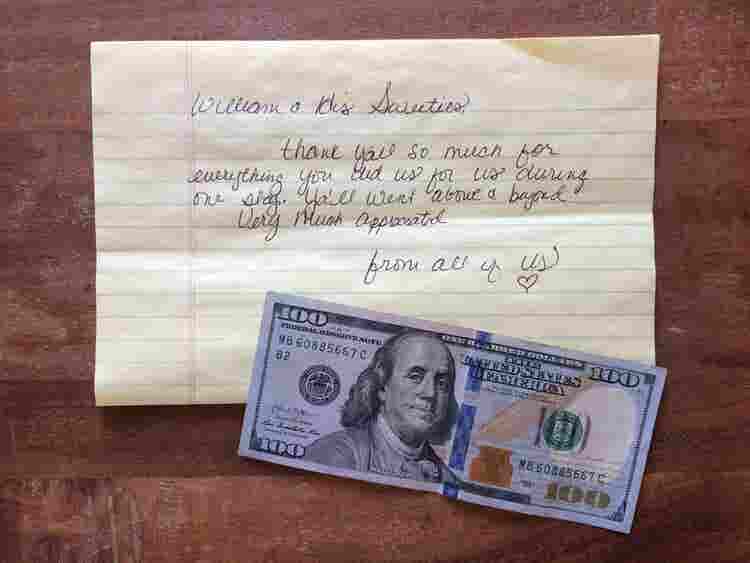 William & His Sweeties,
thank yall so much for
everything you did us for us during
one stay. Ya'll went above & beyond
Very Much Appreciated
from all of us
100
FEDERAL RESERVE NOTE
ONE HUNDRED DOLLARS
100
MB 60885667 C
B2
THE
UNITED STATES
OF AMERICA
MB 60885667 C
100
100